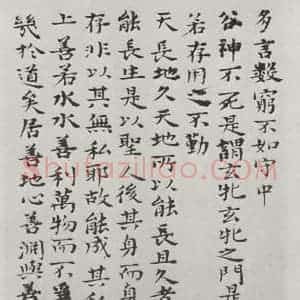 多言數窮不如守中
谷神不死是謂玄牝玄牝之門是
若存用之不勤
天長地久天地所以能長且久者
能長生是以聖人後其身而身
存非以其無私耶故能成其私
上善若水水善利萬物而不
幾於道矣居善地心善淵與善
shufaziliao.com